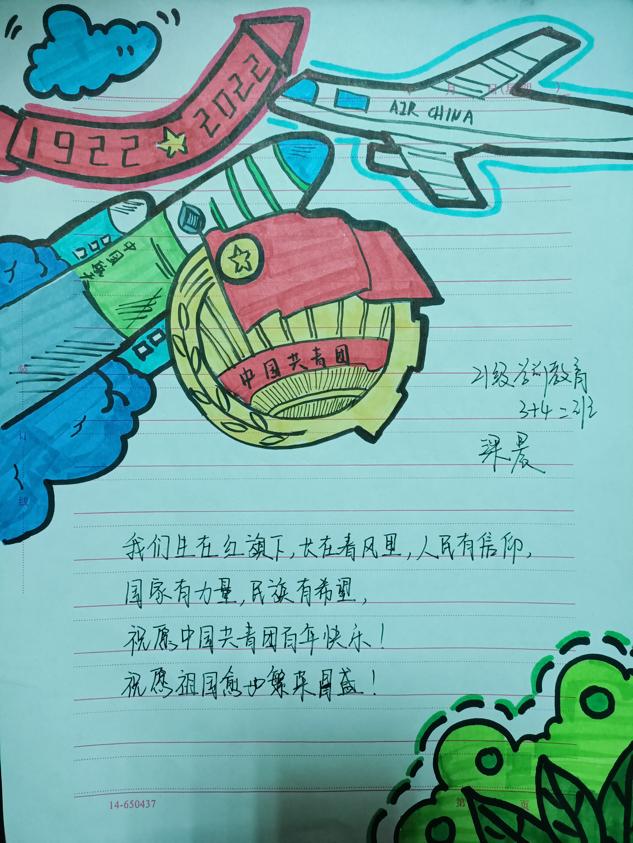 1922 2022
AIR CHINA
中国
中国共青团
21级学前教育
3+4二班
梁晨
我们生在红旗下,长在春风里,人民有信仰,
国家有力量,民族有希望,
祝愿中国共青团百年快乐!
祝愿祖国愈加繁荣昌盛!
14-650437
第 页